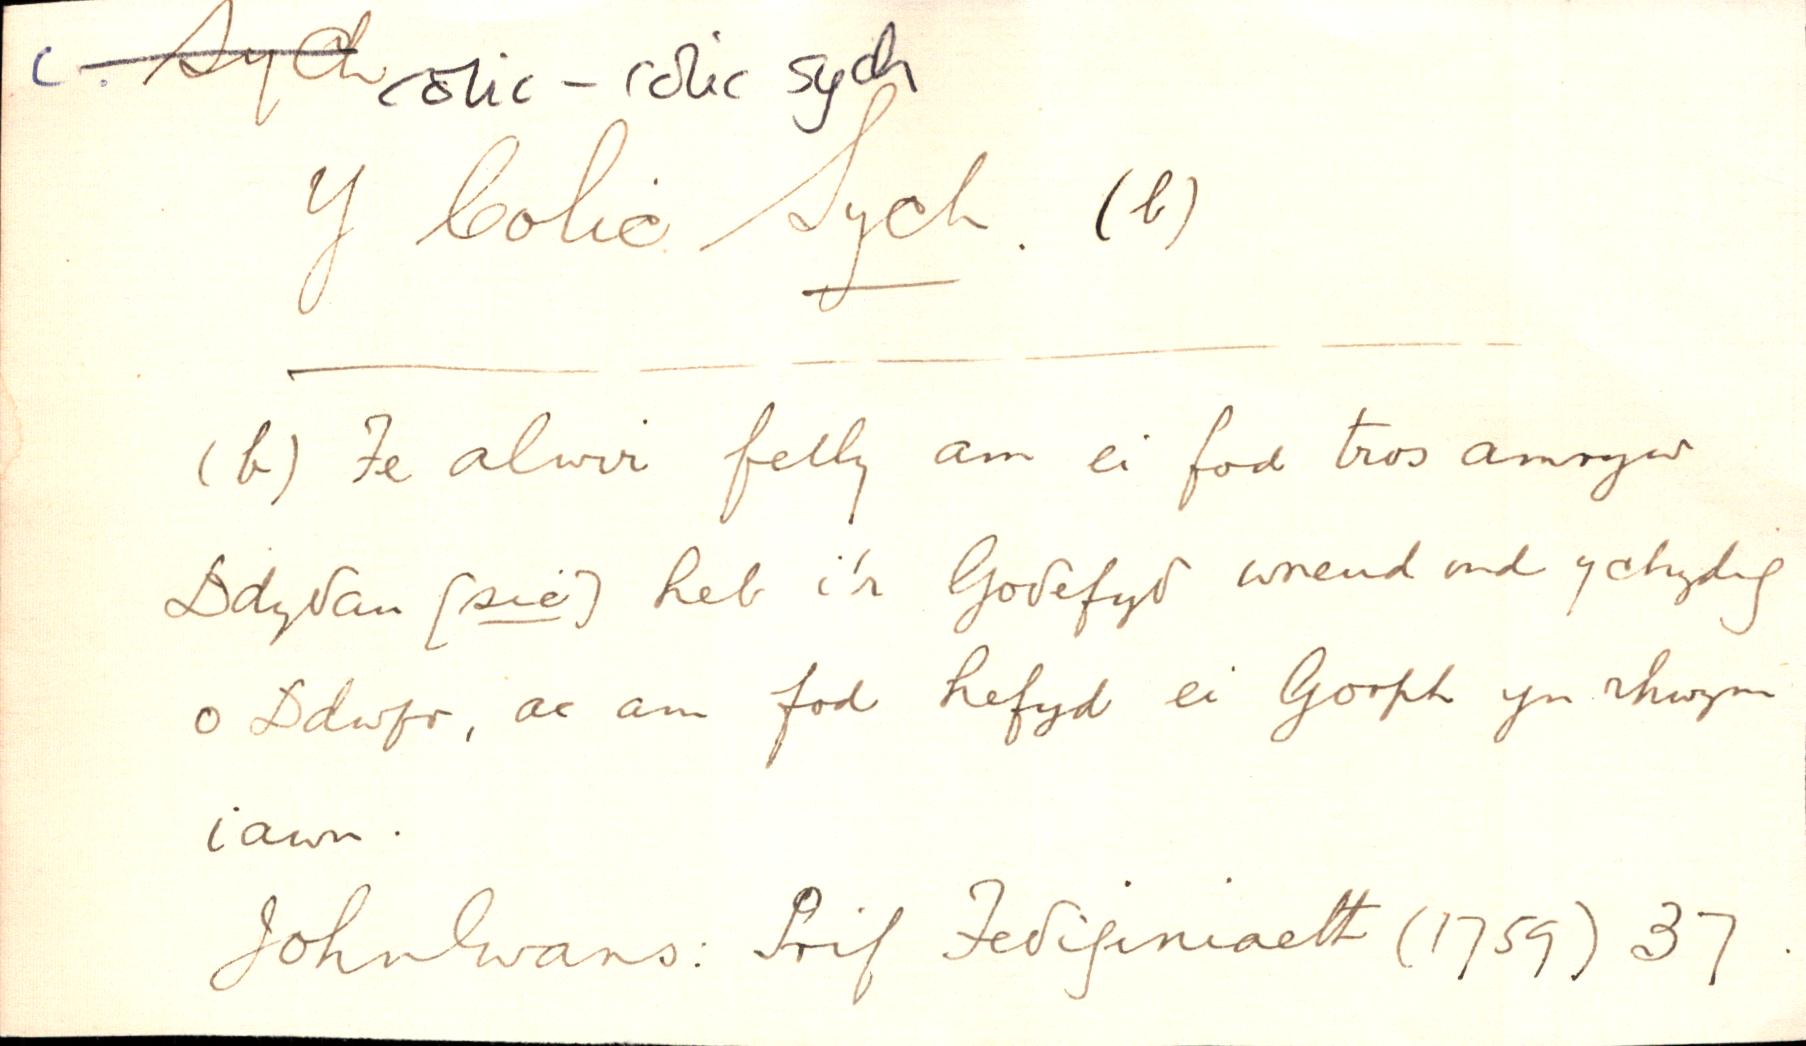 c. Sych colic - colic sych
Y Colic Sych. (b)
(b) Fe alwir felly am ei fod tros amryw
Ddyδau [sic] heb i'r Goδefyδ wneud ond ychydig
o Ddwfr, ac am fod hefyd ei Gorph yn rhwym
iawn.
John Evans: Prif Feδiginiaeth (1759) 37.